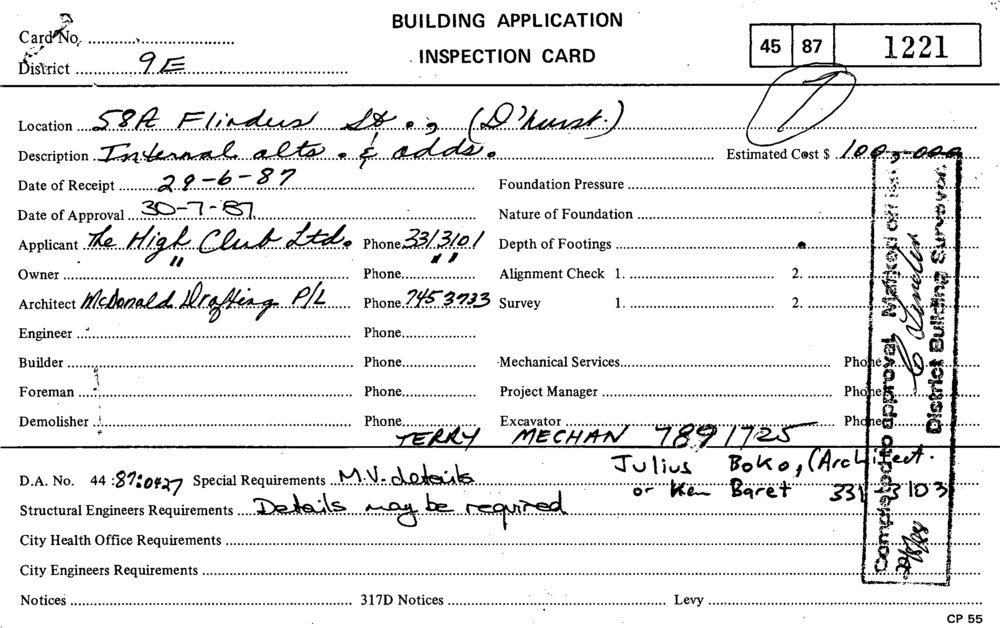 BUILDING APPLICATION
INSPECTION CARD
Card No. 
District 9E
45 87 1221
Location 58A Flinders St., (D'hurst.)
Description Internal alts. & adds. Estimated Cost $ 100,000
Date of Receipt 29-6-87 Foundation Pressure
Date of Approval 30-7-87 Nature of Foundation
Applicant The High Club Ltd. Phone 3313101 Depth of Footings
Owner " Phone " " Alignment Check 1. 2.
Architect McDonald Drafting P/L Phone 7453733 Survey 1. 2.
Engineer Phone
Builder Phone Mechanical Services Phone
Foreman Phone Project Manager Phone
Demolisher Phone Excavator Phone
TERRY MECHAN 7891725
Julius Boko, (Architect.
or Ken Baret 331 3103
D.A. No. 44 :87:0427 Special Requirements M.V. details
Structural Engineers Requirements Details may be required
City Health Office Requirements
City Engineers Requirements
Notices 317D Notices Levy
Completed to approval. Marked off
District Building Surveyor.
CP 55